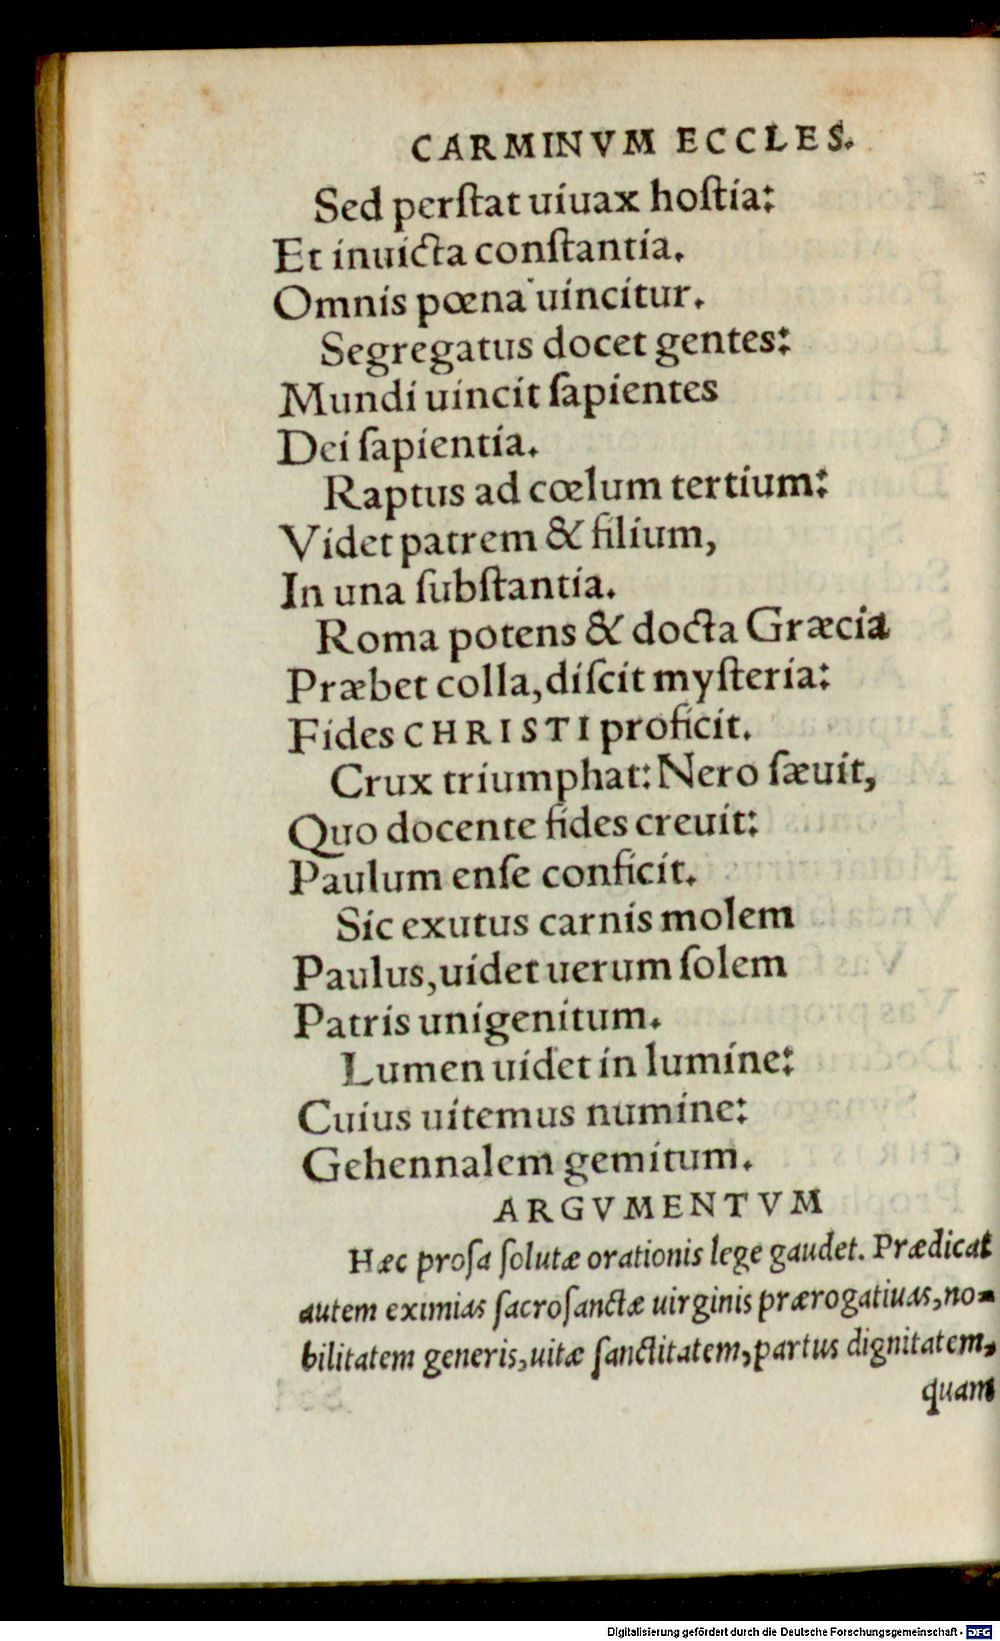 CARMINVM ECCLES.
Sed perſtat uiuax hoſtia:
Et inuicta conſtantia.
Omnis pœna uincitur.
Segregatus docet gentes:
Mundi uincit ſapientes
Dei ſapientia.
Raptus ad cœlum tertium:
Videt patrem & filium,
In una ſubſtantia.
Roma potens & docta Græcia
Præbet colla, diſcit myſteria:
Fides CHRISTI proficit.
Crux triumphat: Nero ſæuit,
Quo docente fides creuit:
Paulum enſe conficit.
Sic exutus carnis molem
Paulus, uidet uerum ſolem
Patris unigenitum.
Lumen uidet in lumine:
Cuius uitemus numine:
Gehennalem gemitum.
ARGVMENTVM
Hæc proſa ſolutæ orationis lege gaudet. Prædicat
autem eximias ſacroſanctæ uirginis prærogatiuas, no-
bilitatem generis, uitæ ſanctitatem, partus dignitatem,
quam
Digitalisierung gefördert durch die Deutsche Forschungsgemeinschaft - DFG